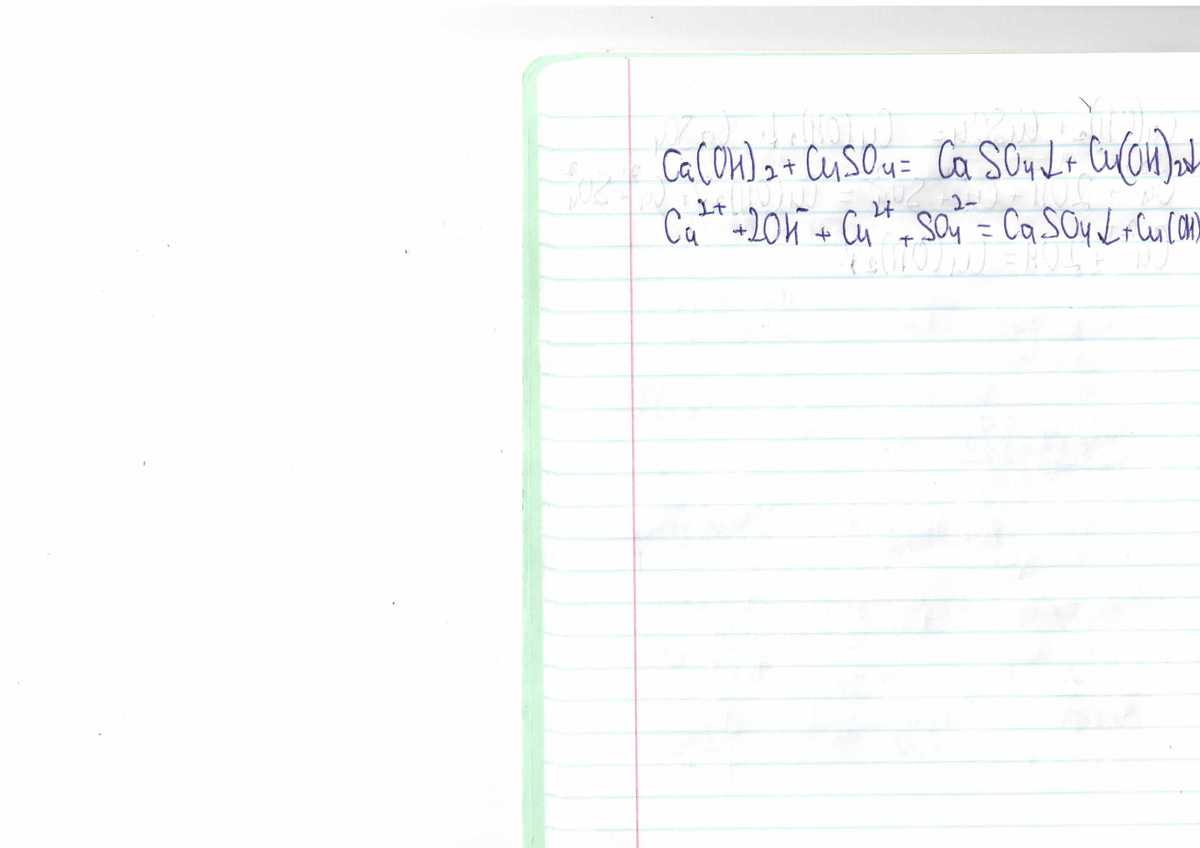 Ca(OH)2 + CuSO4 = CaSO4↓ + Cu(OH)2↓
Ca2+ + 2OH- + Cu2+ + SO42- = CaSO4↓ + Cu(OH)